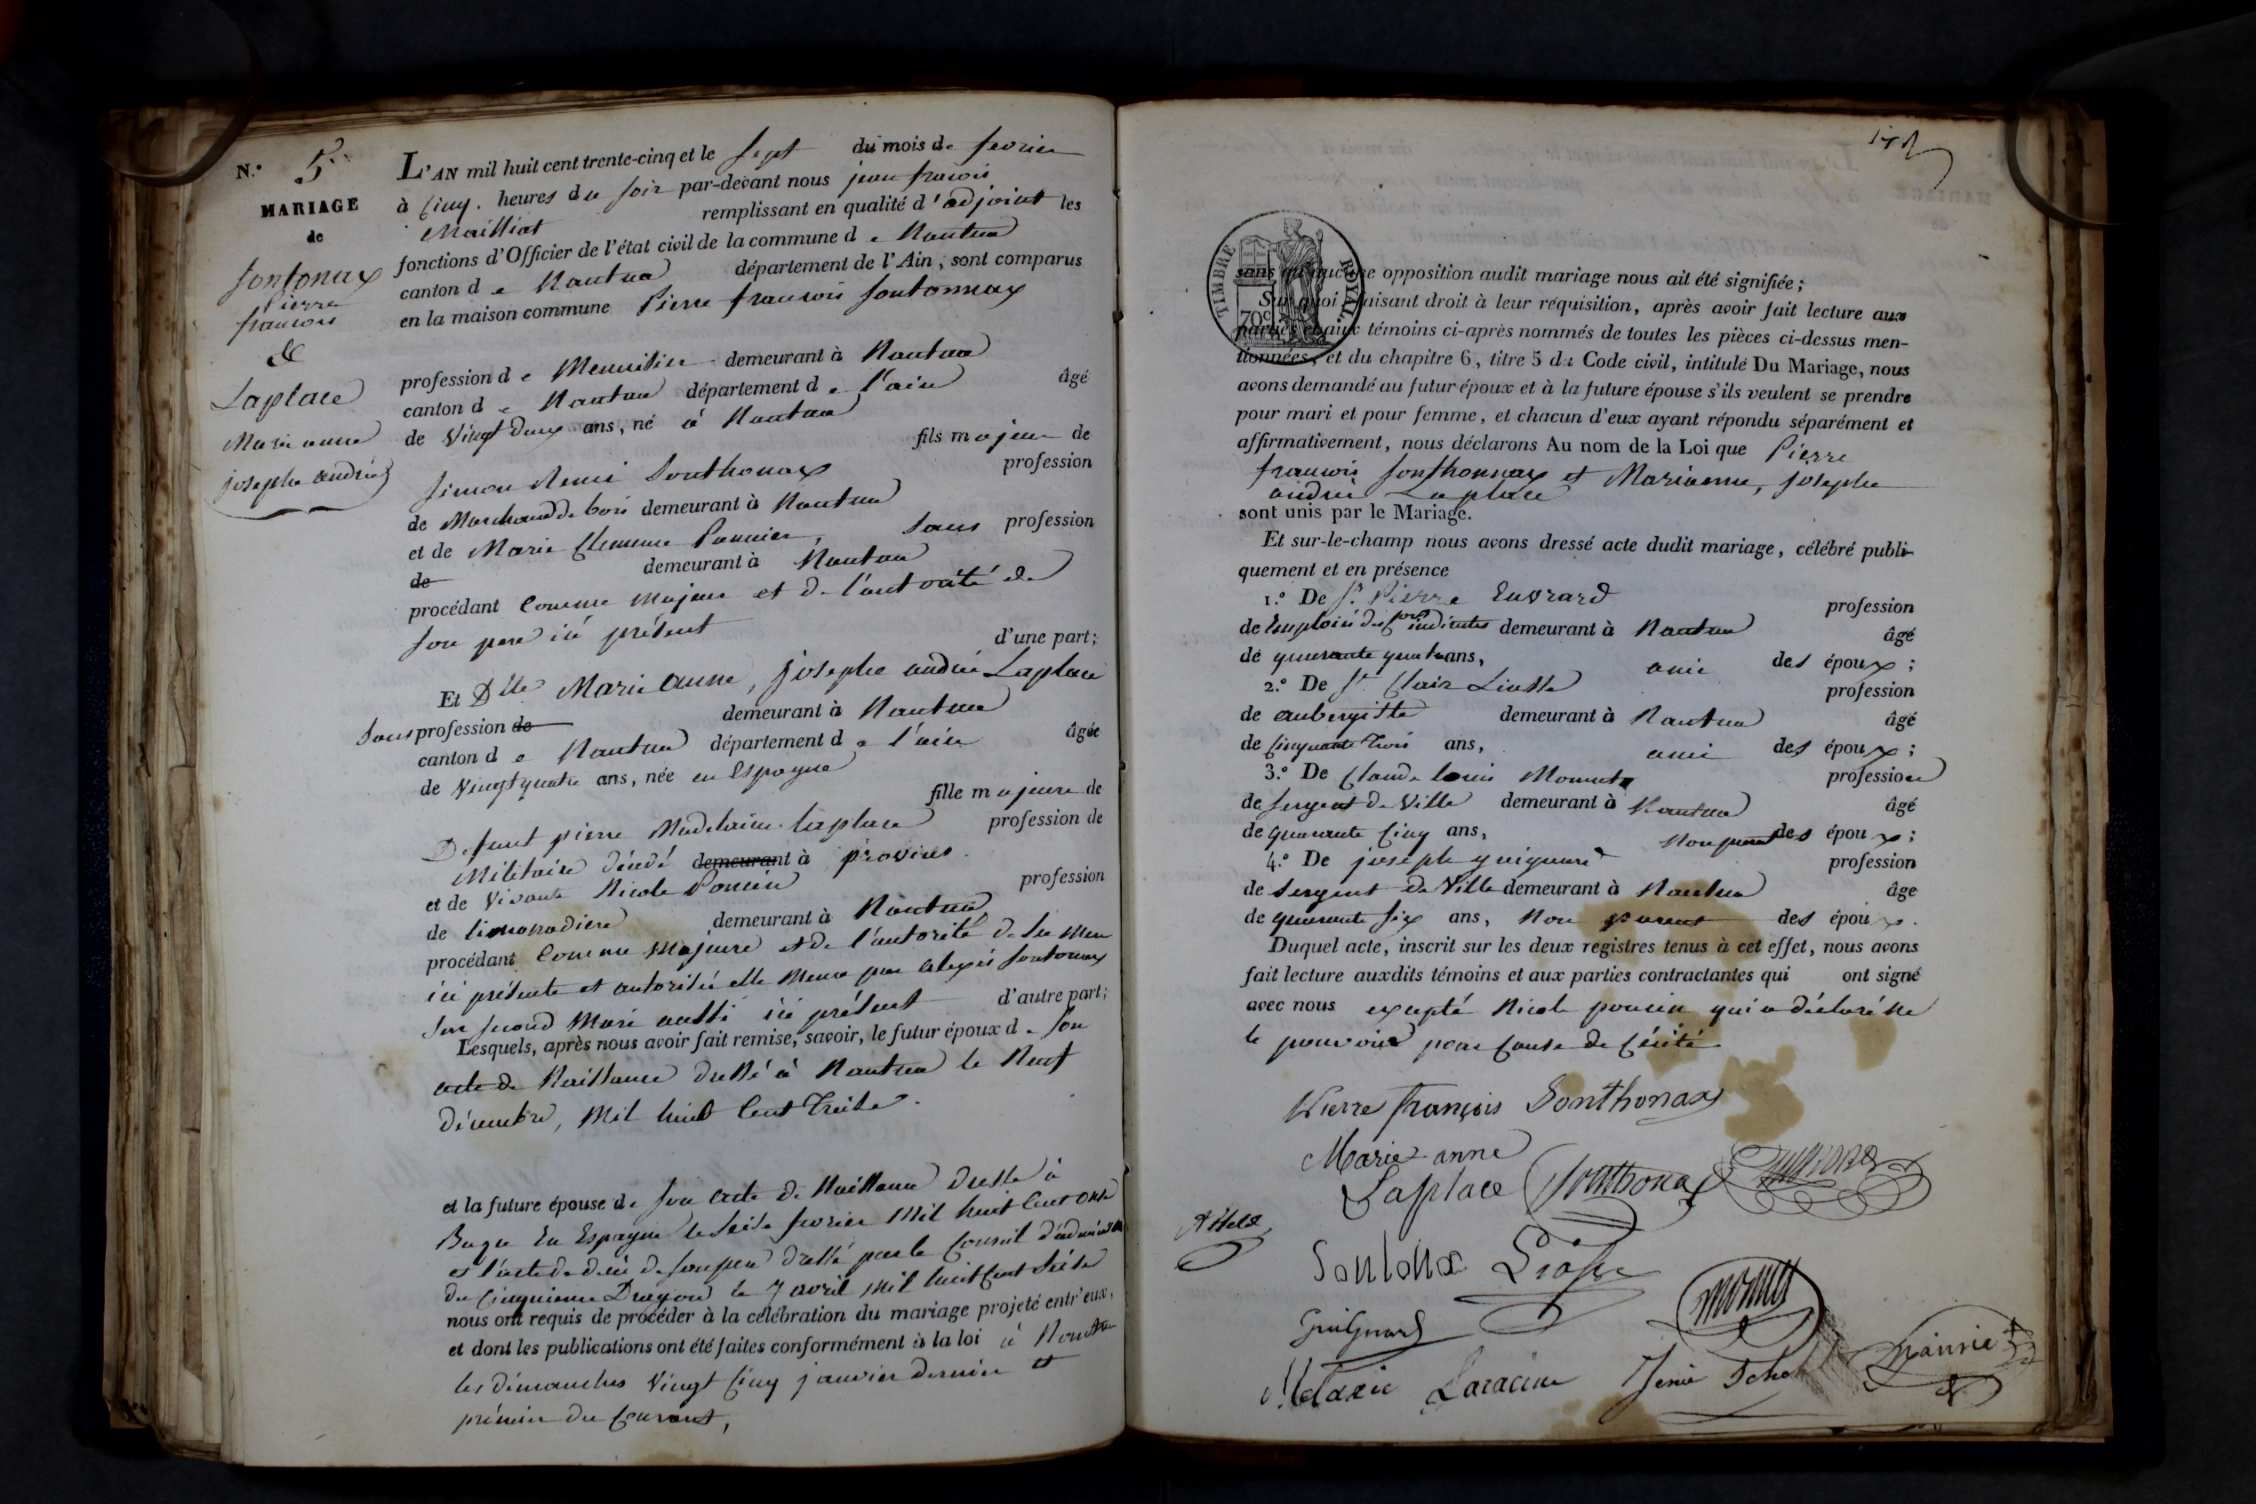 N.° 5
MARIAGE
de
Sontonax
Pierre
francois
&
Laplace
Marie anne
josephe andrée
L'AN mil huit cent trente-cinq et le sept du mois de fevrier
à cinq heures du soir par-devant nous jean francois
Mailliat remplissant en qualité d'adjoint les
fonctions d'Officier de l'état civil de la commune de Nantua
canton de Nantua département de l'Ain, sont comparus
en la maison commune Pierre francois Sontonnax
profession de Menuisier demeurant à Nantua
canton de Nantua département de l'ain âgé
de Vingt deux ans, né à Nantua
fils majeur de
Simon Remi Sonthonax profession
de Marchand de bois demeurant à Nantua
et de Marie Clemence Pannier, sans profession
de demeurant à Nantua
procédant comme majeur et de l'autorité de
son pere ici présent d'une part;
Et Dlle Marie anne, josephe andrée Laplace
sans profession de demeurant à Nantua
canton de Nantua département de l'ain âgée
de Vingt quatre ans, née en Espagne
fille majeure de
Defunt pierre Madelaine Laplace profession de
Militaire décédé demeurant à
et de Vivante Nicole Poncin profession
de limonadiere demeurant à Nantua
procédant comme Majeure et de l'autorité de sa mere
ici présente et autorisée elle meme par alexis Sontonax
son second Mari aussi ici présent d'autre part;
Lesquels, après nous avoir fait remise, savoir, le futur époux de son
acte de Naissance dressé à Nantua le Neuf
décembre, Mil huit cent treize.
et la future épouse de son acte de Naissance dressé à
en Espagne le seize fevrier Mil huit cent onze
et l'acte de décès de son pere dressé par le Conseil d'administration
du cinquieme Dragons le 7 avril Mil huit cent seize
nous ont requis de procéder à la célébration du mariage projeté entr'eux,
et dont les publications ont été faites conformément à la loi à Nantua
les dimanches Vingt cinq janvier dernier et
premier du courant,
sans qu'aucune opposition audit mariage nous ait été signifiée;
TIMBRE ROYAL
70c
Sur quoi faisant droit à leur réquisition, après avoir fait lecture aux
parties et aux témoins ci-après nommés de toutes les pièces ci-dessus men-
tionnées, et du chapitre 6, titre 5 du Code civil, intitulé Du Mariage, nous
avons demandé au futur époux et à la future épouse s'ils veulent se prendre
pour mari et pour femme, et chacun d'eux ayant répondu séparément et
affirmativement, nous déclarons Au nom de la Loi que Pierre
francois Sonthonnax et Marianne, josephe
andrée Laplace
sont unis par le Mariage.
Et sur-le-champ nous avons dressé acte dudit mariage, célébré publi-
quement et en présence
1.° De Sr Pierre Euvrard profession
de Emploié des Cons indirectes demeurant à Nantua âgé
de quarante quatre ans, ami des époux;
2.° De Sr Clair Liasse profession
de aubergiste demeurant à Nantua âgé
de cinquante trois ans, ami des époux;
3.° De Claude louis Monnet profession
de sergent de Ville demeurant à Nantua âgé
de quarante cinq ans, Non parent des époux;
4.° De joseph guignard profession
de Sergent de Ville demeurant à Nantua âge
de quarante six ans, Non parent des époux.
Duquel acte, inscrit sur les deux registres tenus à cet effet, nous avons
fait lecture auxdits témoins et aux parties contractantes qui ont signé
avec nous excepté Nicole poncin qui a déclaré ne
le pouvoir pour cause de cécité.
Pierre françois Sonthonax
Marie anne
Laplace Sonthonax
Sontonax Liasse
Guignard
Monnet
Melanie Laracine